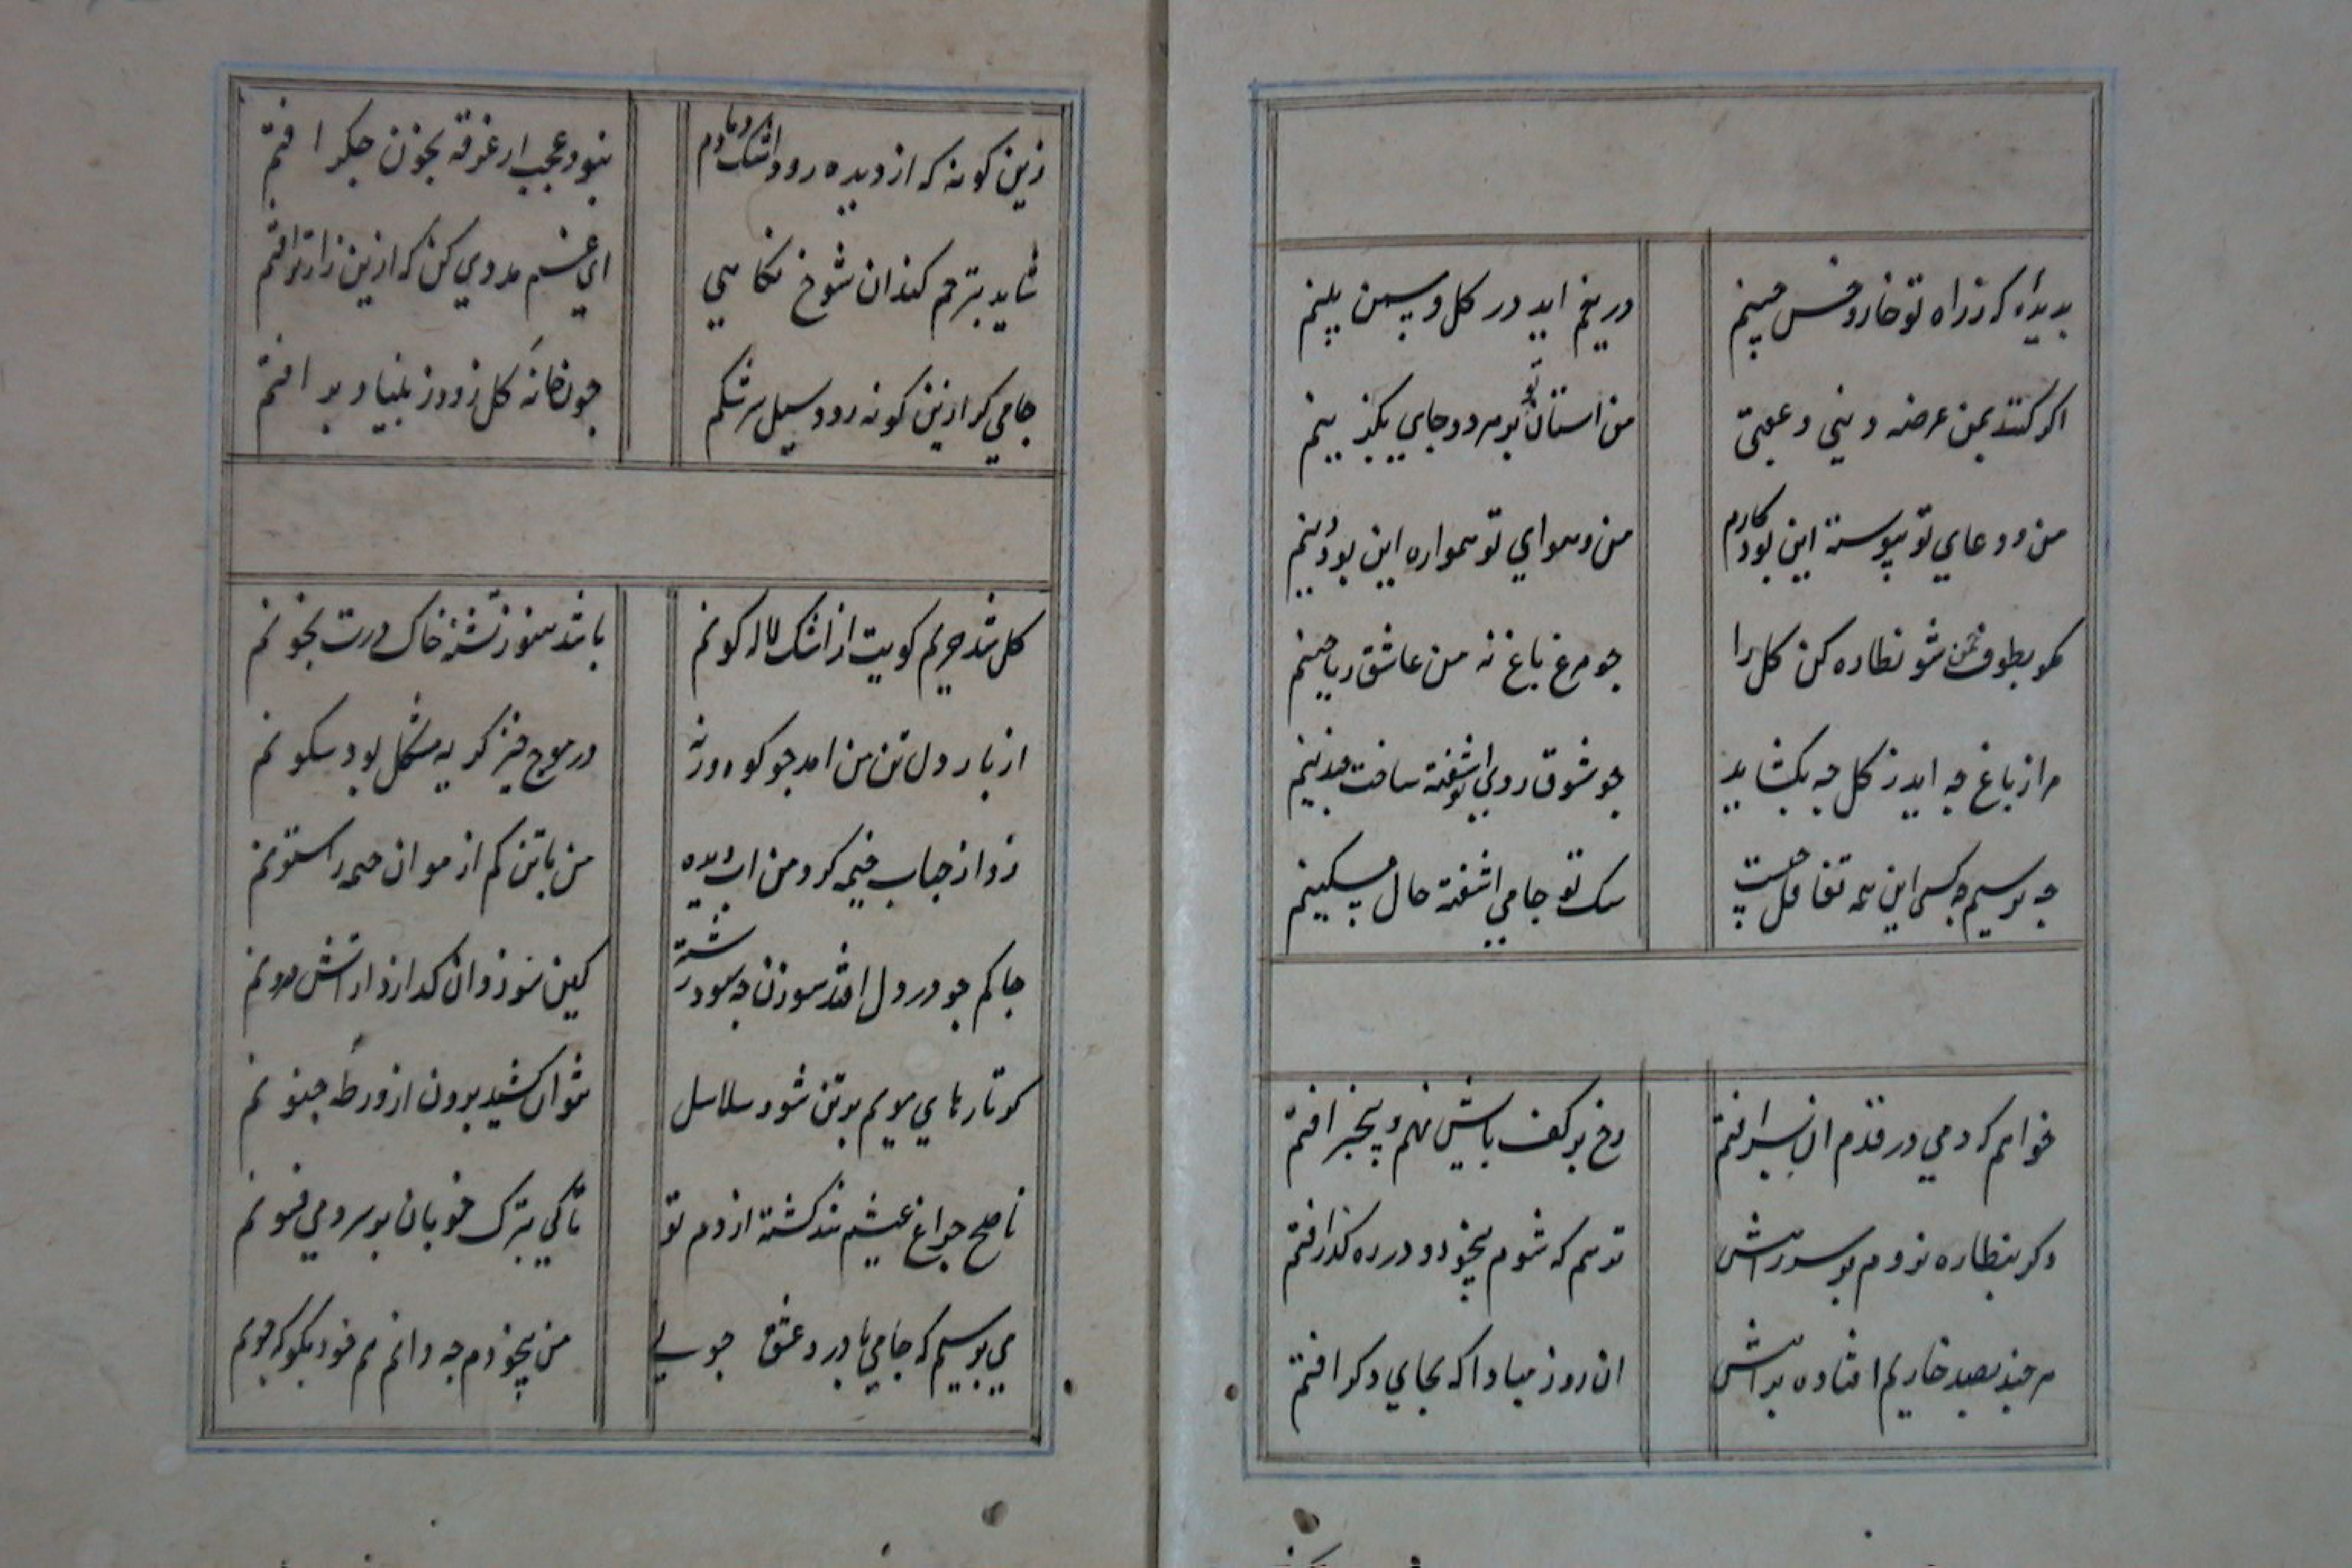 بدیده کر ز راه تو خار و خس چینم
دریغم اید در کل و سمن بینم
اکر کنند بمن عرضه دینی و عقبی
من استان تو بر هر دو جای بکزینم
من و دعای تو پیوسته این بود کارم
من و هوای تو همواره این بود دینم
مکو بطوف چمن شو نظاره کن کل را
جو مرغ باغ نه من عاشق ریاحینم
مرا ز باغ جه اید ز کل جه بکشاید
جو شوق روی تو اشفته ساخت چندینم
جه پرسیم جه کسی این همه تغافل چیست
سک تو جامی اشفته حال مسکینم
خواهم که دمی در قدم ان پسر افتم
رخ بر کف پایش نهم و بیخبر افتم
دکر بنظاره نروم بر سر راهش
ترسم که شوم بیخود و در رهکذر افتم
هر چند بصد خاریم افتاده براهش
ان روز مبادا که بجای دکر افتم
زین کونه که از دیده رود اشک دمادم
نبود عجب ار غرقه بخون جکر افتم
شاید بترحم کند ان شوخ نکاهی
ای غم مددی کن که ازین زارتر افتم
جامی کر ازین کونه رود سیل سرشکم
جون خانه کل زود ز بنیاد بر افتم
کل شد حریم کویت از اشک لاله کونم
باشد هنوز تشنه خاک درت بخونم
از بار دل تن من امد جو کوه ورنه
در موج خیز کریه مشکل بود سکونم
زد از حباب خیمه کرد من اب دیده
من با تن کم از مو ان خیمه را ستونم
جاکم جو در دل افتد سوزن جه سود و رشته
کین سوزد وان کدازد از اتش درونم
کر تارهای مویم بر تن شود سلاسل
نتوان کشید برون از ورطه جنونم
ناصح چراغ عیشم شد کشته از دم تو
تا کی بترک خوبان بر سر دمی فسونم
می پرسیم که جامی با درد عشق جونی
من بیخودم جه دانم هم خود بکو که جونم